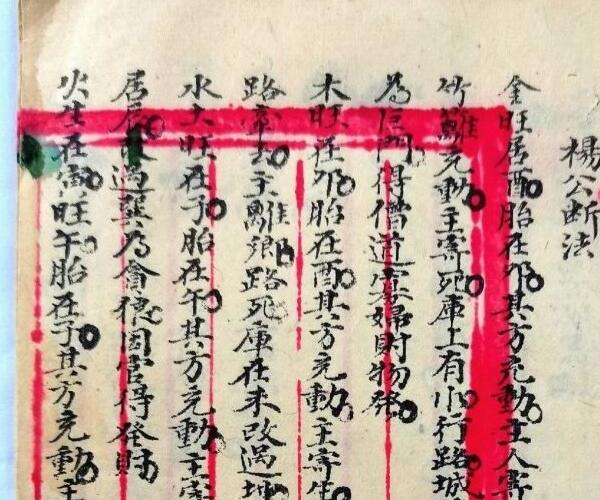 楊公断法
金旺居酉胎在卯其方充動主人寄
竹離充動主寄死庫上有小行路城
為得僧道寡婦財物發
木旺在卯胎在酉其方充動主寄生
路主離鄉路死庫在未改過坤
水土旺在子胎在午其方充動主寄
居辰過巽為會德因官得發財
火生在寅旺午胎在子其方充動主